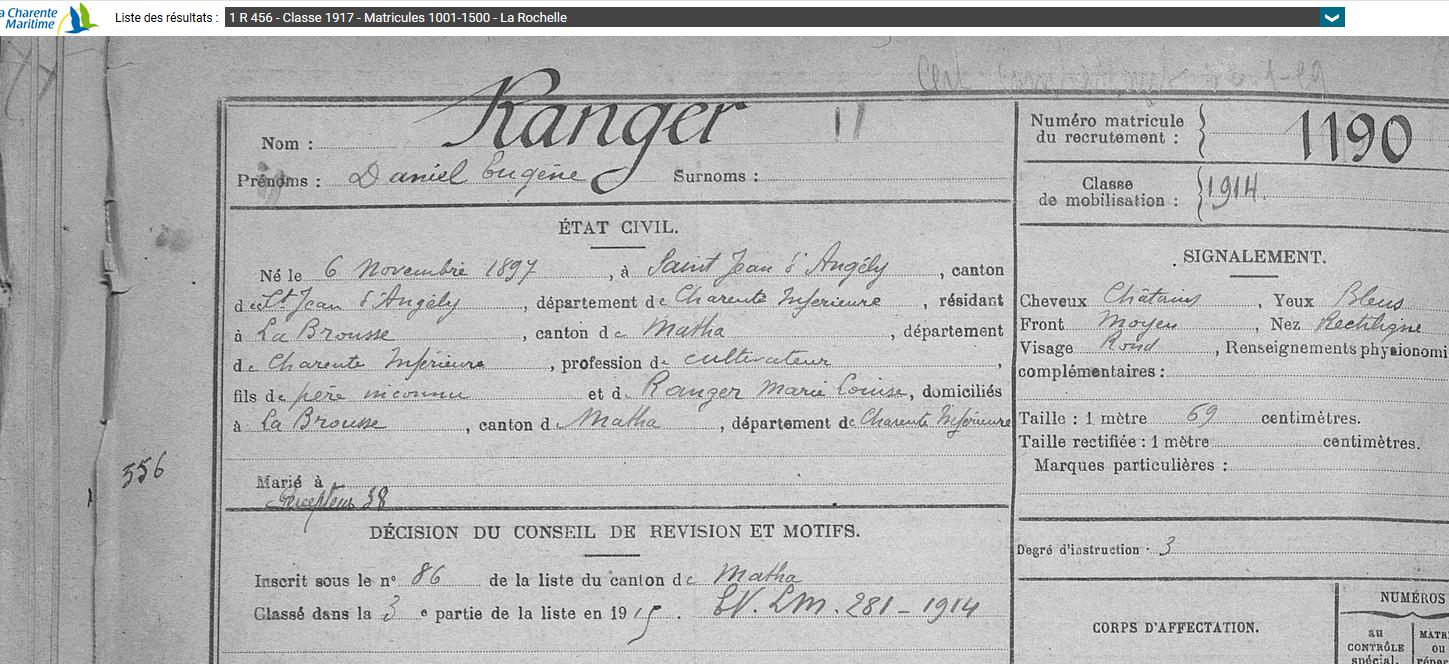 La Charente
Maritime
Liste des résultats : 1 R 456 - Classe 1917 - Matricules 1001-1500 - La Rochelle
Nom : Ranger 11
Prénoms : Daniel Eugène Surnoms :
Numéro matricule du recrutement : 1190
Classe de mobilisation : 1914.
ÉTAT CIVIL.
Né le 6 Novembre 1897, à Saint Jean d'Angély, canton
de St Jean d'Angély, département de Charente Inférieure, résidant
à La Brousse, canton de Matha, département
de Charente Inférieure, profession de cultivateur,
fils de père inconnu et de Ranger Marie Louise, domiciliés
à La Brousse, canton de Matha, département de Charente Inférieure
556
Marié à
38
SIGNALEMENT.
Cheveux Châtains, Yeux Bleus
Front Moyen, Nez Rectiligne
Visage Rond, Renseignements physionomi
complémentaires :
Taille : 1 mètre 69 centimètres.
Taille rectifiée : 1 mètre centimètres.
Marques particulières :
Degré d'instruction : 3
DÉCISION DU CONSEIL DE REVISION ET MOTIFS.
Inscrit sous le n° 86 de la liste du canton de Matha
Classé dans la 3 e partie de la liste en 1915. LM. 281 - 1914
CORPS D'AFFECTATION.
NUMÉROS
au
CONTRÔLE
spécial.
MATRI
ou